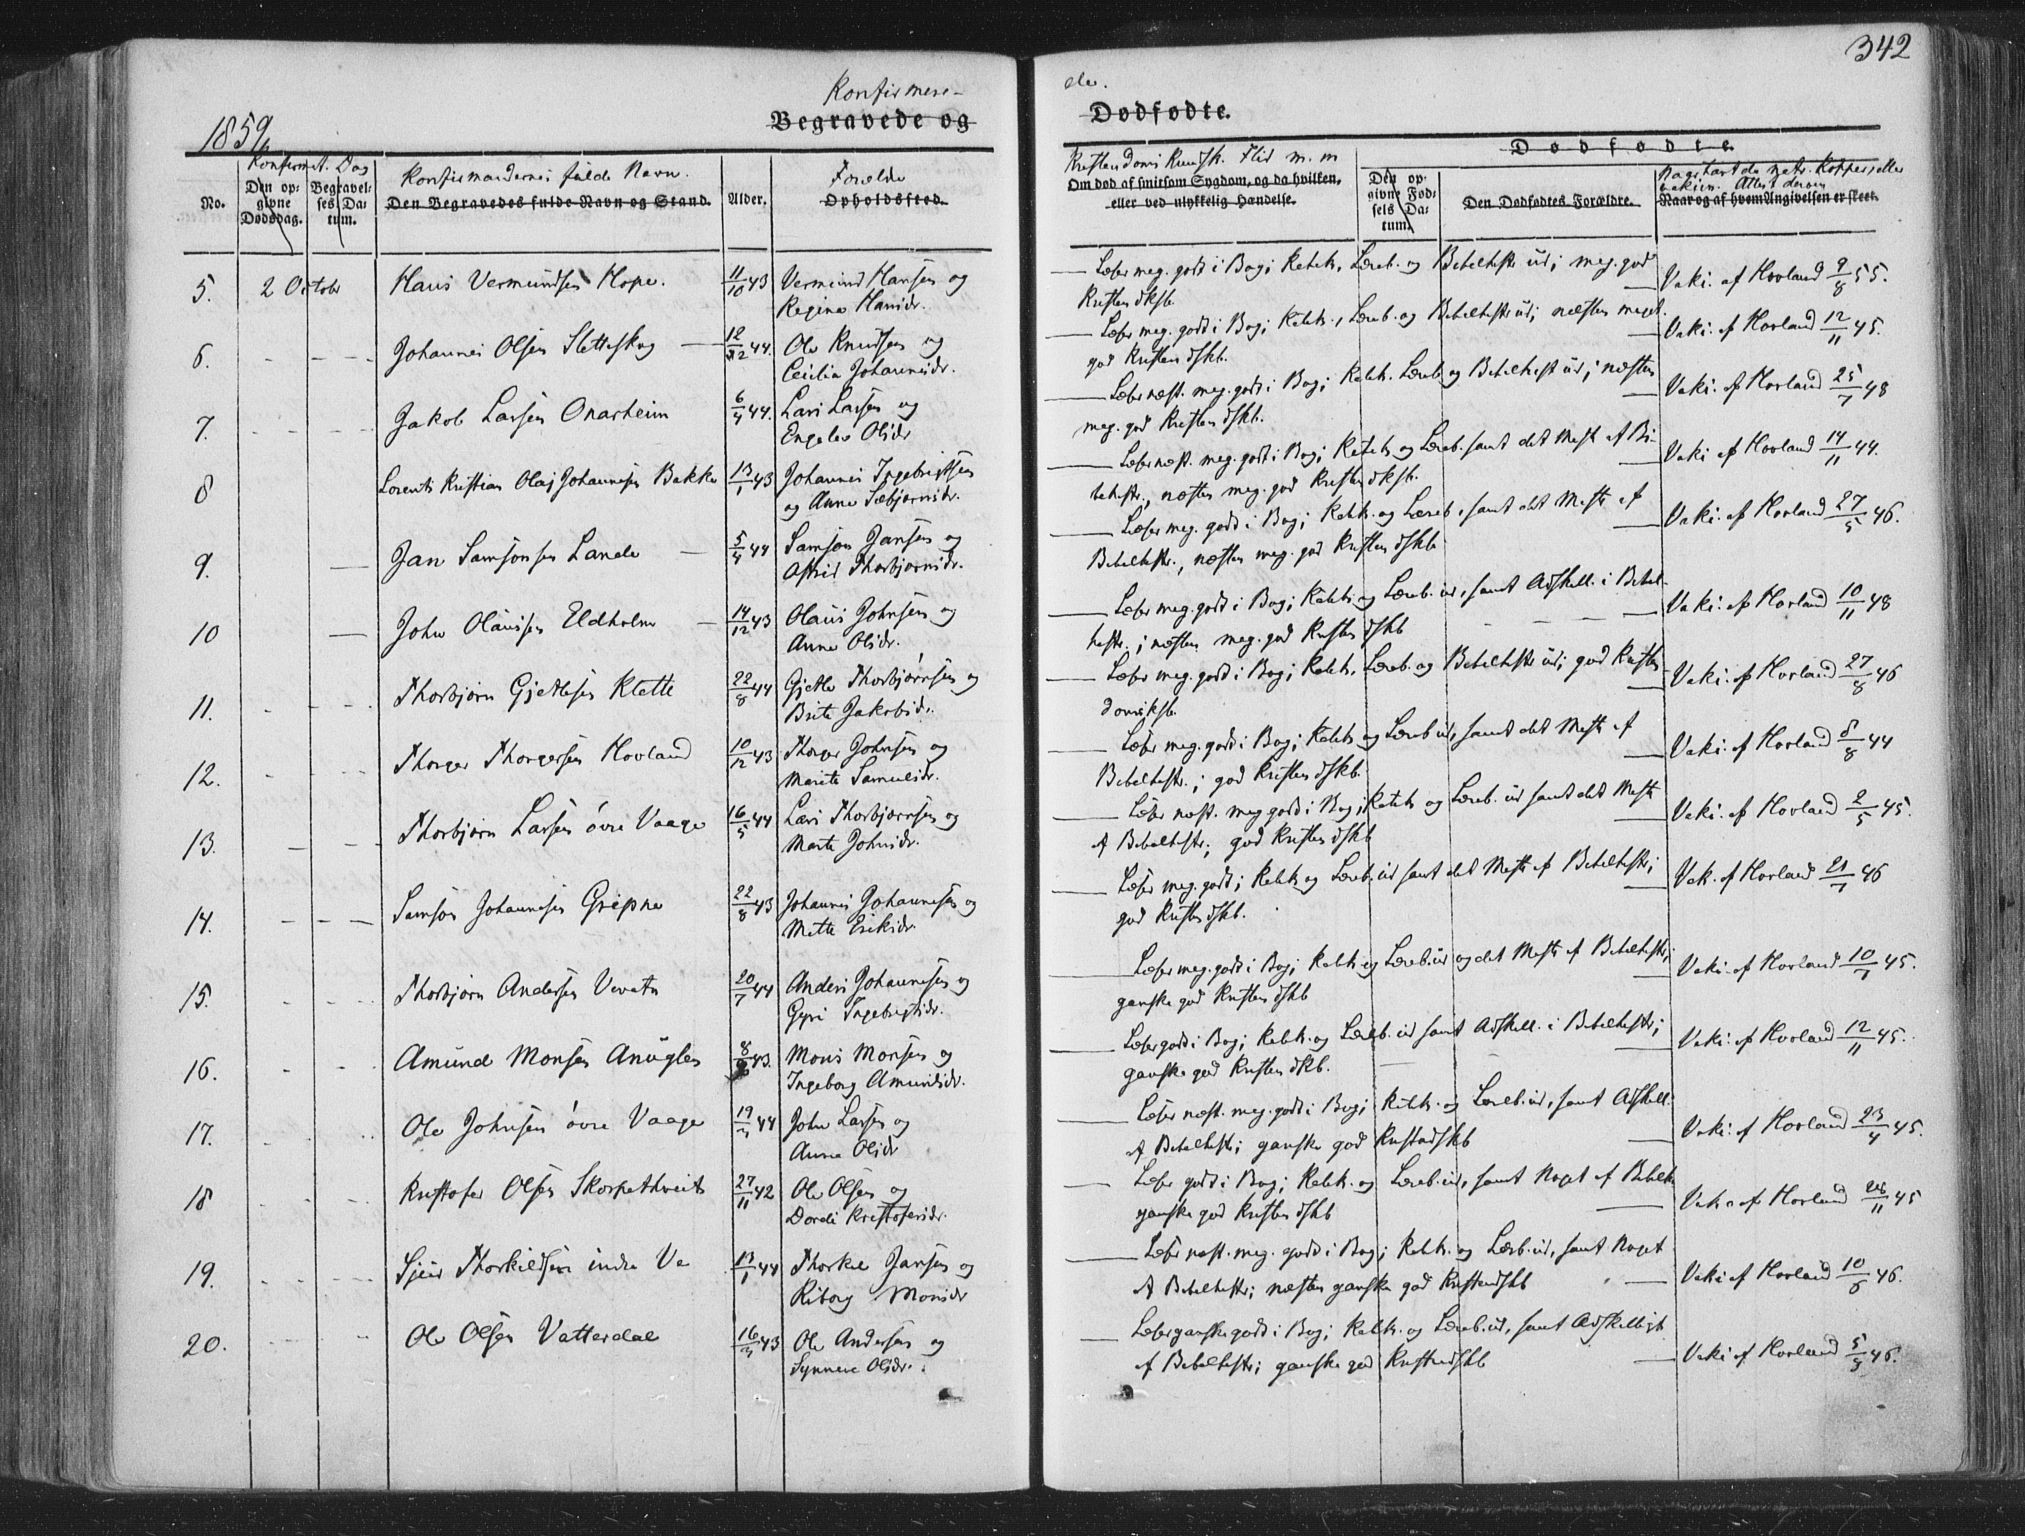 342
Konfirmere-
de.
1859
Begravede og
Dødfødte.
Konfirmat. Dag
Konfirmandernes fulde Navn.
Forældre
Kristendoms Kundsk. Flid m. m
Dødfødte.
No.
Den opgivne Dødsdag.
Begravelses Datum.
Den Begravedes fulde Navn og Stand.
Alder.
Opholdssted.
Om død af smitsom Sygdom, og da hvilken,
eller ved ulykkelig Hændelse.
Den opgivne Fødsels Datum.
Den Dødfødtes Forældre.
Naar og af hvem Angivelsen er skeet.
5. 2 Octobr Hans Vermundsen Hope. 11/10 43 Vermund Hansen og
Regine Hansdr.
Læser meg. godt i Bog; Katek., Læreb. og Bibelhistr ud; meg. god
Kristendksb.
Vaki. af Hovland 9/8 55.
6. Johannes Olsen Sletteskog 12/12 44. Ole Knudsen og
Cecilia Johannesdr.
Læser meg. godt i Bog; Katek., Læreb. og Bibelhistr ud; næsten meget
god Kristendskb.
Vaki. af Hovland 12/11 45.
7. Jakob Larsen Onarheim 6/4 44. Lars Larsen og
Engelev Olsdr
Læser næst. meg. godt i Bog; Katek. Læreb. og Bibelhist ud; næsten
meg. god Kristendskb.
Vaki. af Hovland 25/7 48
8 Lorents Kristian Olai Johannesen Bakke 13/1 43 Johannes Ingebrigtsen
og Anne Sæbjørnsdr.
Læser næst. meg. godt i Bog; Katek og Læreb. samt det Meste af Bi-
belhistr., næsten meg. god Kristendksb.
Vaki af Hovland 14/11 44.
9. Jan Samsonsen Lande 5/4 44 Samson Jansen og
Astrid Thorbjørnsdr.
Læser meg. godt i Bog; Katek. og Læreb., samt det Meste af
Bibelhistr., næsten meg. god Kristendskb
Vaki. af Hovland 27/5 46.
10 John Olausen Eldholm 14/12 43 Olaus Johnsen og
Anne Olsdr.
Læser meg. godt i Bog; Katek. og Læreb. ud, samt Adskill. i Bibel-
histr.; næsten meg. god Kristendskb
Vaki. af Hovland 10/11 48
11. Thorbjørn Gjetlesen Klette 22/8 44 Gjetle Thorbjørnsen og
Brite Jakobsdr.
Læser meg. godt i Bog; Katek, Læreb. og Bibelhistr ud; god Kristen-
domsksb.
Vaki. af Hovland 27/8 46
12. Thorger Thorgersen Hovland 10/12 43 Thorger Johnsen og
Marite Samuelsdr.
Læser meg. godt i Bog; Katek og Læreb ud, samt det Meste af
Bibelhistr.; god Kristendskb.
Vaki. af Hovland 5/8 44
13. Thorbjørn Larsen øvre Vaage 16/5 44 Lars Thorbjørnsen og
Marte Johnsdr.
Læser næst. meg godt i Bog; Katek og Læreb. ud samt det Meste
af Bibelhistr.; god Kristendskb
Vaki. af Hovland 2/5 45.
14. Samson Johannesen Gripne 22/8 43 Johannes Johannesen og
Mette Eriksdr.
Læser meg. godt; Katek og Læreb. ud samt det Meste af Bibelhistr;
god Kristendskb.
Vak. af Hovland 21/7 46
15. Thorbjørn Andersen Vevatn 20/7 44 Anders Johannesen og
Gyri Ingebrigtsdr.
Læser meg. godt i Bog; Katek og Læreb. ud og det Meste af Bibelhistr;
ganske god Kristendskb
Vaki. af Hovland 10/7 45.
16. Amund Monsen Anugles 8/9 43. Mons Monsen og
Ingeborg Amundsdr.
Læser godt i Bog; Katek. og Læreb. ud samt Adskill. i Bibelhistr;
ganske god Kristendskb.
Vaki. af Hovland 12/11 45.
17. Ole Johnsen øvre Vaage 19/3 44 John Larsen og
Anna Olsdr
Læser næst. meg. godt i Bog; Katek. og Læreb. ud, samt Adskill.
af Bibelhistr; ganske god Kristendskb
Vaki. af Hovland 23/4 45.
18 Kristofer Olsen Skorpethveit 27/11 42 Ole Olsen og
Dordi Kristofersdr.
Læser godt i Bog; Katek. og Læreb. ud, samt Noget af Bibelh.
ganske god Kristendskb
Vak. af Hovland 26/11 45
19. Sjur Thorkildsen indre Ve 13/1 44 Thorkil Jansen og
Riborg Monsdr
Læser næst. meg. godt i Bog; Katek. og Læreb. ud, samt Noget
af Bibelhistr; næsten ganske god Kristendskb
Vaki af Hovland 10/6 46.
20. Ole Olsen Vatterdal 16/3 43 Ole Andersen og
Synneve Olsdr.
Læser ganske godt i Bog; Katek. og Læreb. ud, samt Adskilligt
af Bibelhistr; ganske god Kristendskb
Vaki af Hovland 5/5 46.